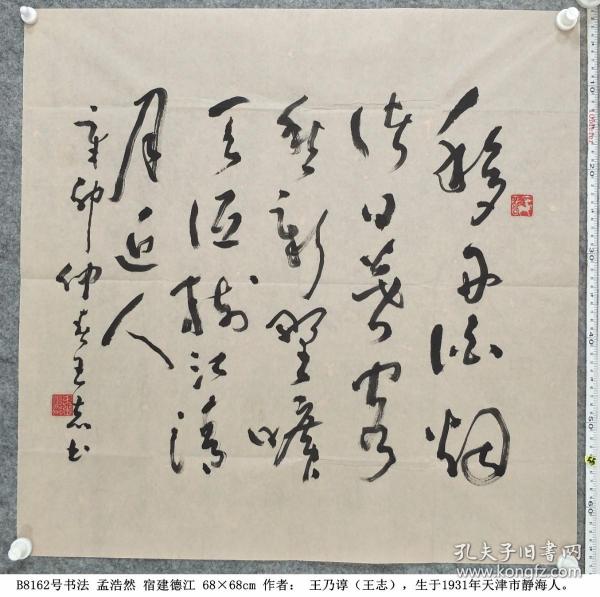 移舟泊烟
渚日暮客
愁新野曠
天低樹江清
月近人
辛卯仲春王志书
孔夫子旧书网
B8162号书法 孟浩然 宿建德江 68×68cm 作者： 王乃谆（王志），生于1931年天津市静海人。